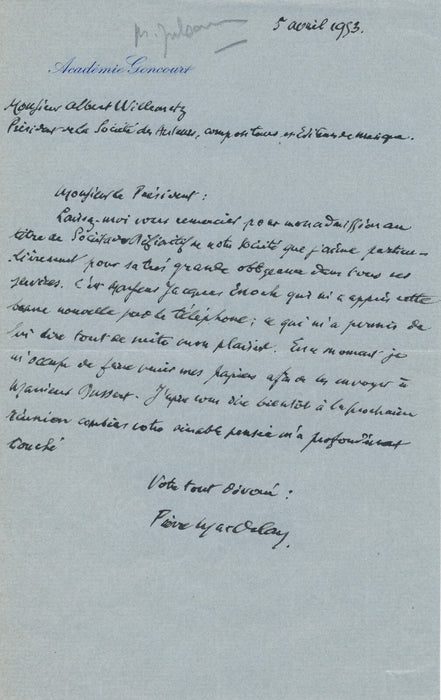 5 avril 1953.
Académie Goncourt
Monsieur Albert Willemetz
Président de la Société des Auteurs, compositeurs, et Editeurs de musique.
Monsieur le Président :
Laissez-moi vous remercier pour mon admission au
titre de Sociétaire Définitif de notre Société que j'aime particu-
lièrement pour sa très grande obligeance dans tous ses
services. C'est Monsieur Jacques Enoch qui m'a appris cette
bonne nouvelle par le téléphone ; ce qui m'a permis de
lui dire tout de suite mon plaisir. En ce moment je
m'occupe de faire venir mes papiers afin de les envoyer à
Monsieur . J'espère vous dire bientôt à la prochaine
réunion combien votre aimable pensée m'a profondément
touché
Votre tout dévoué :
Pierre Mac Orlan.